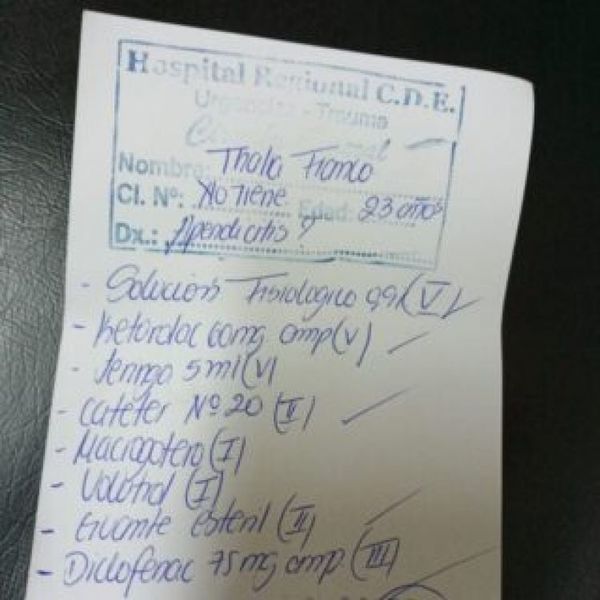 Hospital Regional C.D.E.
Urgencias - Trauma
Nombre: Thalia Franco
CI. Nº: No tiene Edad: 23 años
Dx.: Apendicitis?
- Solución Fisiologico 0,9% (V)
- Ketorolac 60mg amp (V)
- Jeringa 5ml (V)
- Cateter Nº 20 (II)
- Macrogotero (I)
- Volutrol (I)
- Guante esteril (II)
- Diclofenac 75mg amp. (III)